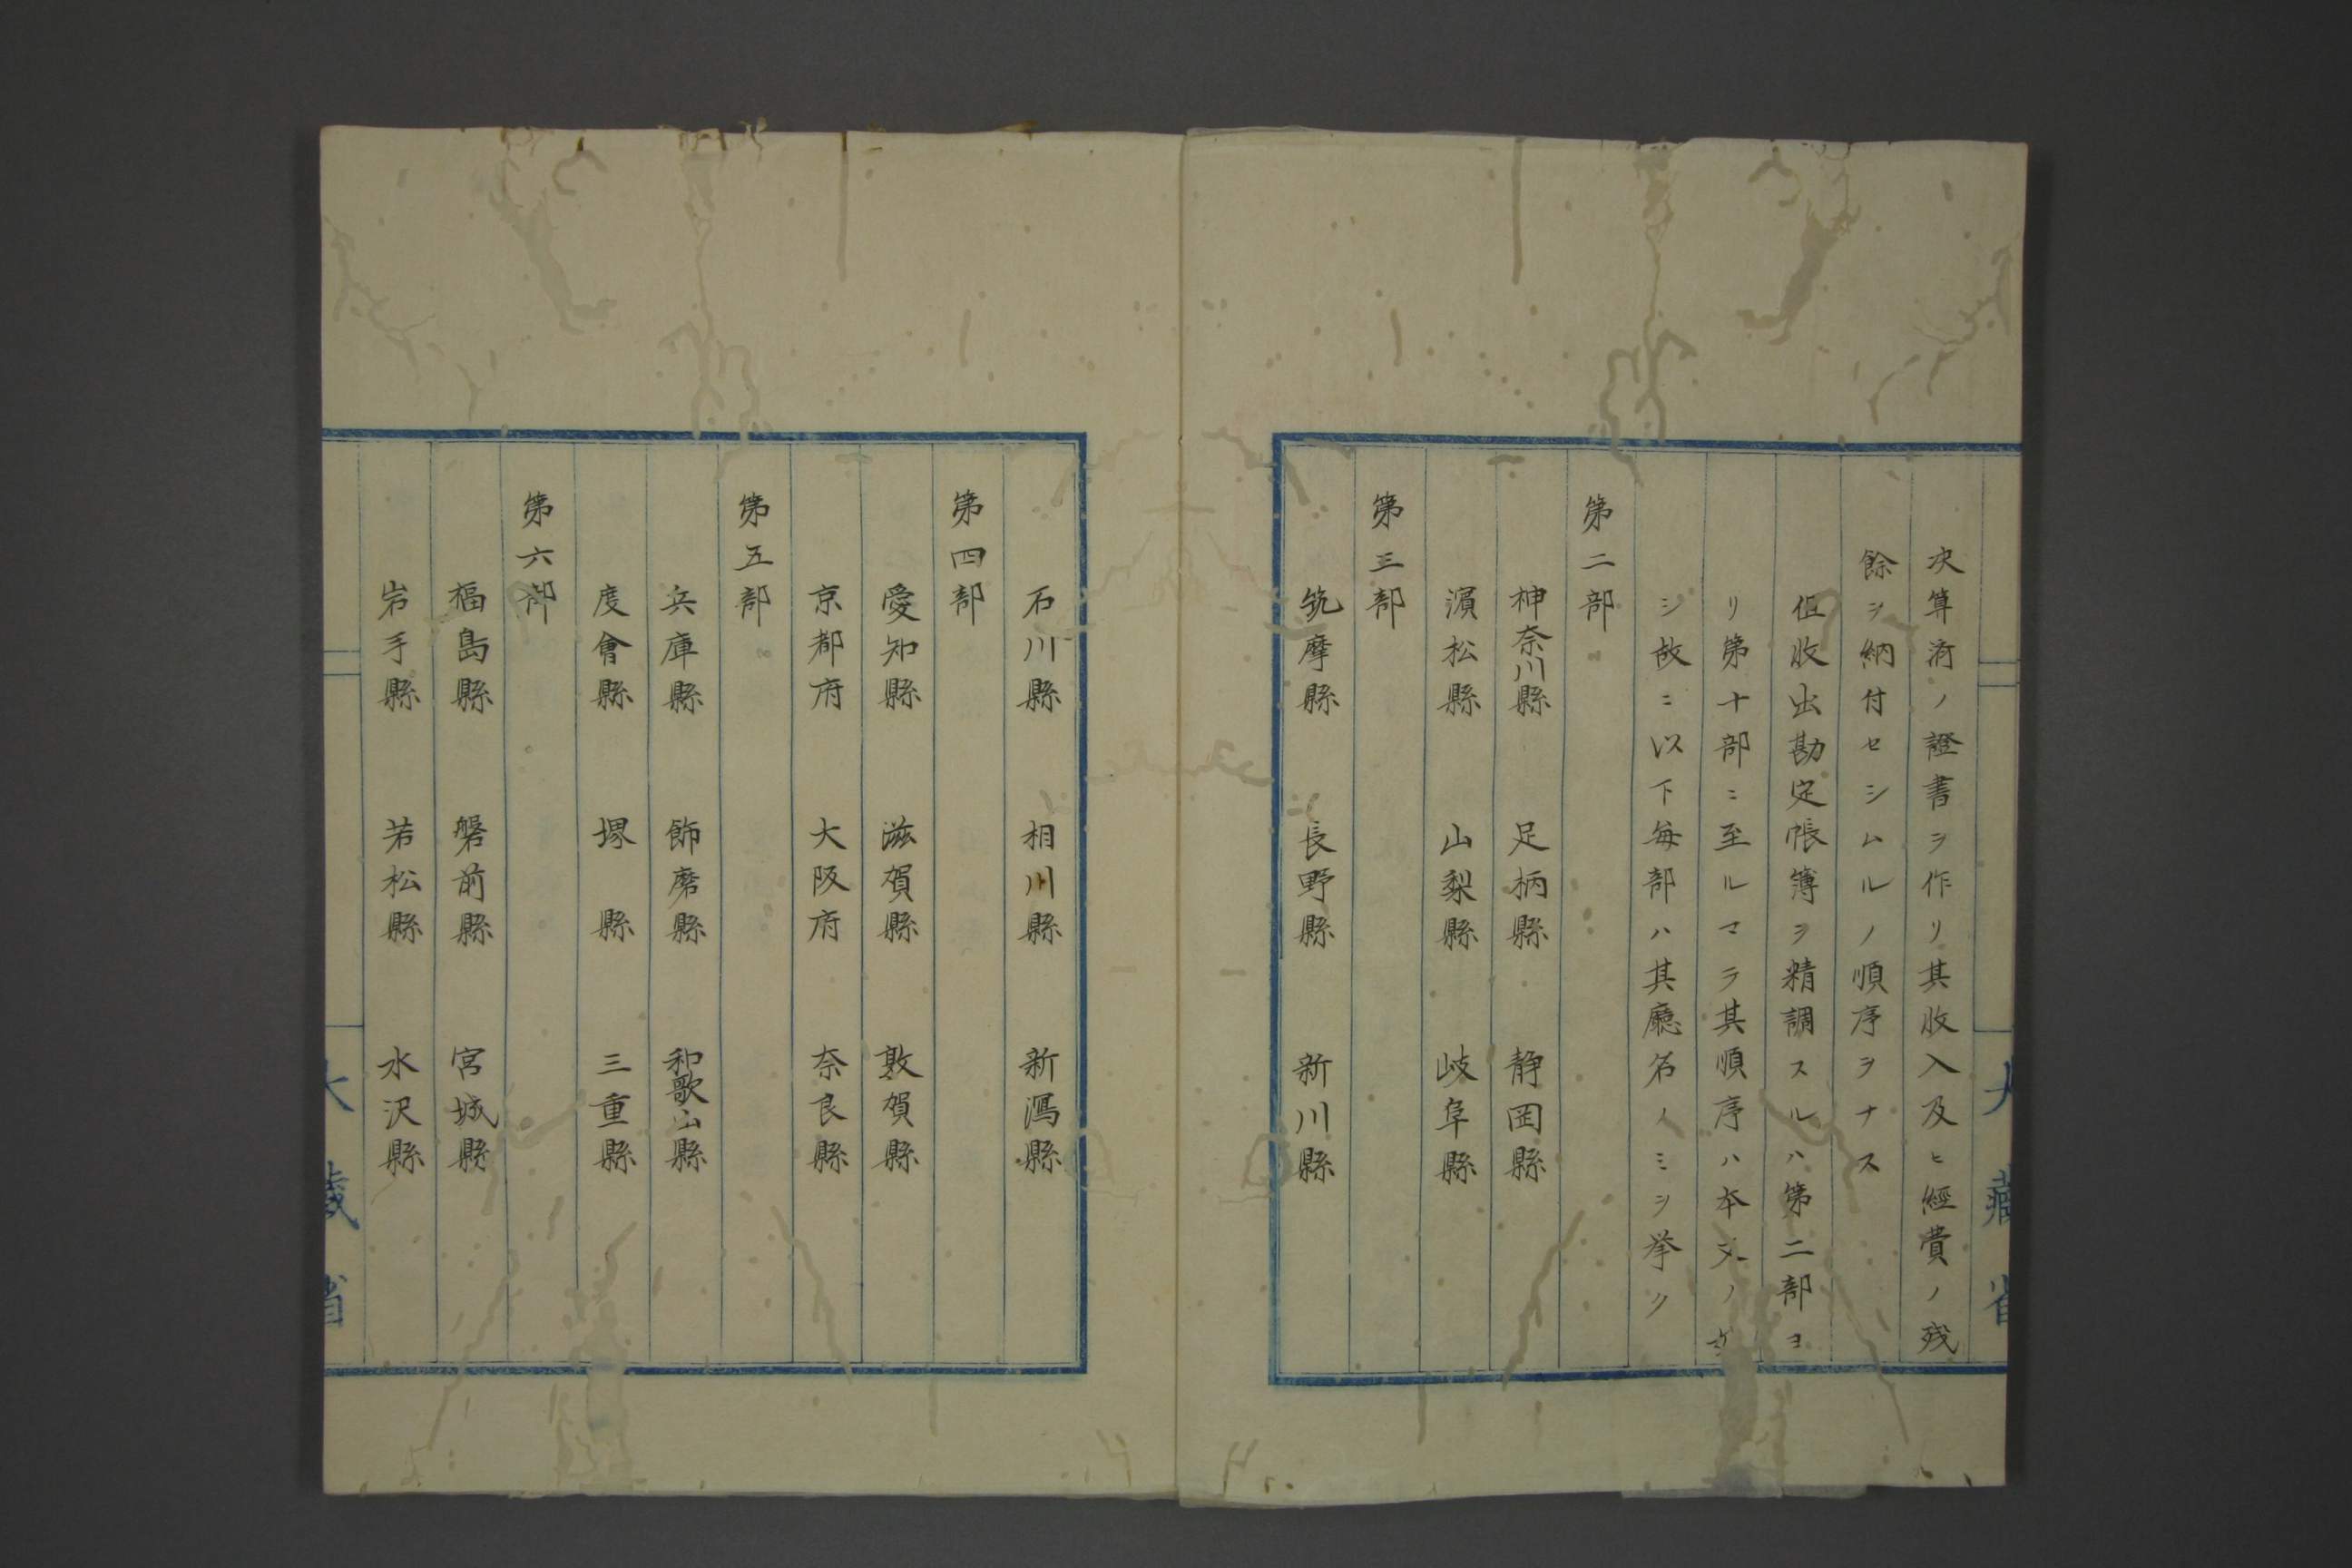 決算済ノ證書ヲ作リ其收入及ヒ經費ノ残
餘ヲ納付セシムルノ順序ヲナス
但收出勘定帳簿ヲ精調スルハ第二部ヨ
リ第十部ニ至ルマテ其順序ハ本文ノ
シ故ニ以下毎部ハ其廳名ノミヲ挙ク
第二部
神奈川縣 足柄縣 静岡縣
濵松縣 山梨縣 岐阜縣
第三部
筑摩縣 長野縣 新川縣
大藏省
石川縣 相川縣 新潟縣
第四部
愛知縣 滋賀縣 敦賀縣
京都府 大阪府 奈良縣
第五部
兵庫縣 飾磨縣 和歌山縣
度會縣 堺縣 三重縣
第六部
福島縣 磐前縣 宮城縣
岩手縣 若松縣 水沢縣
大藏省